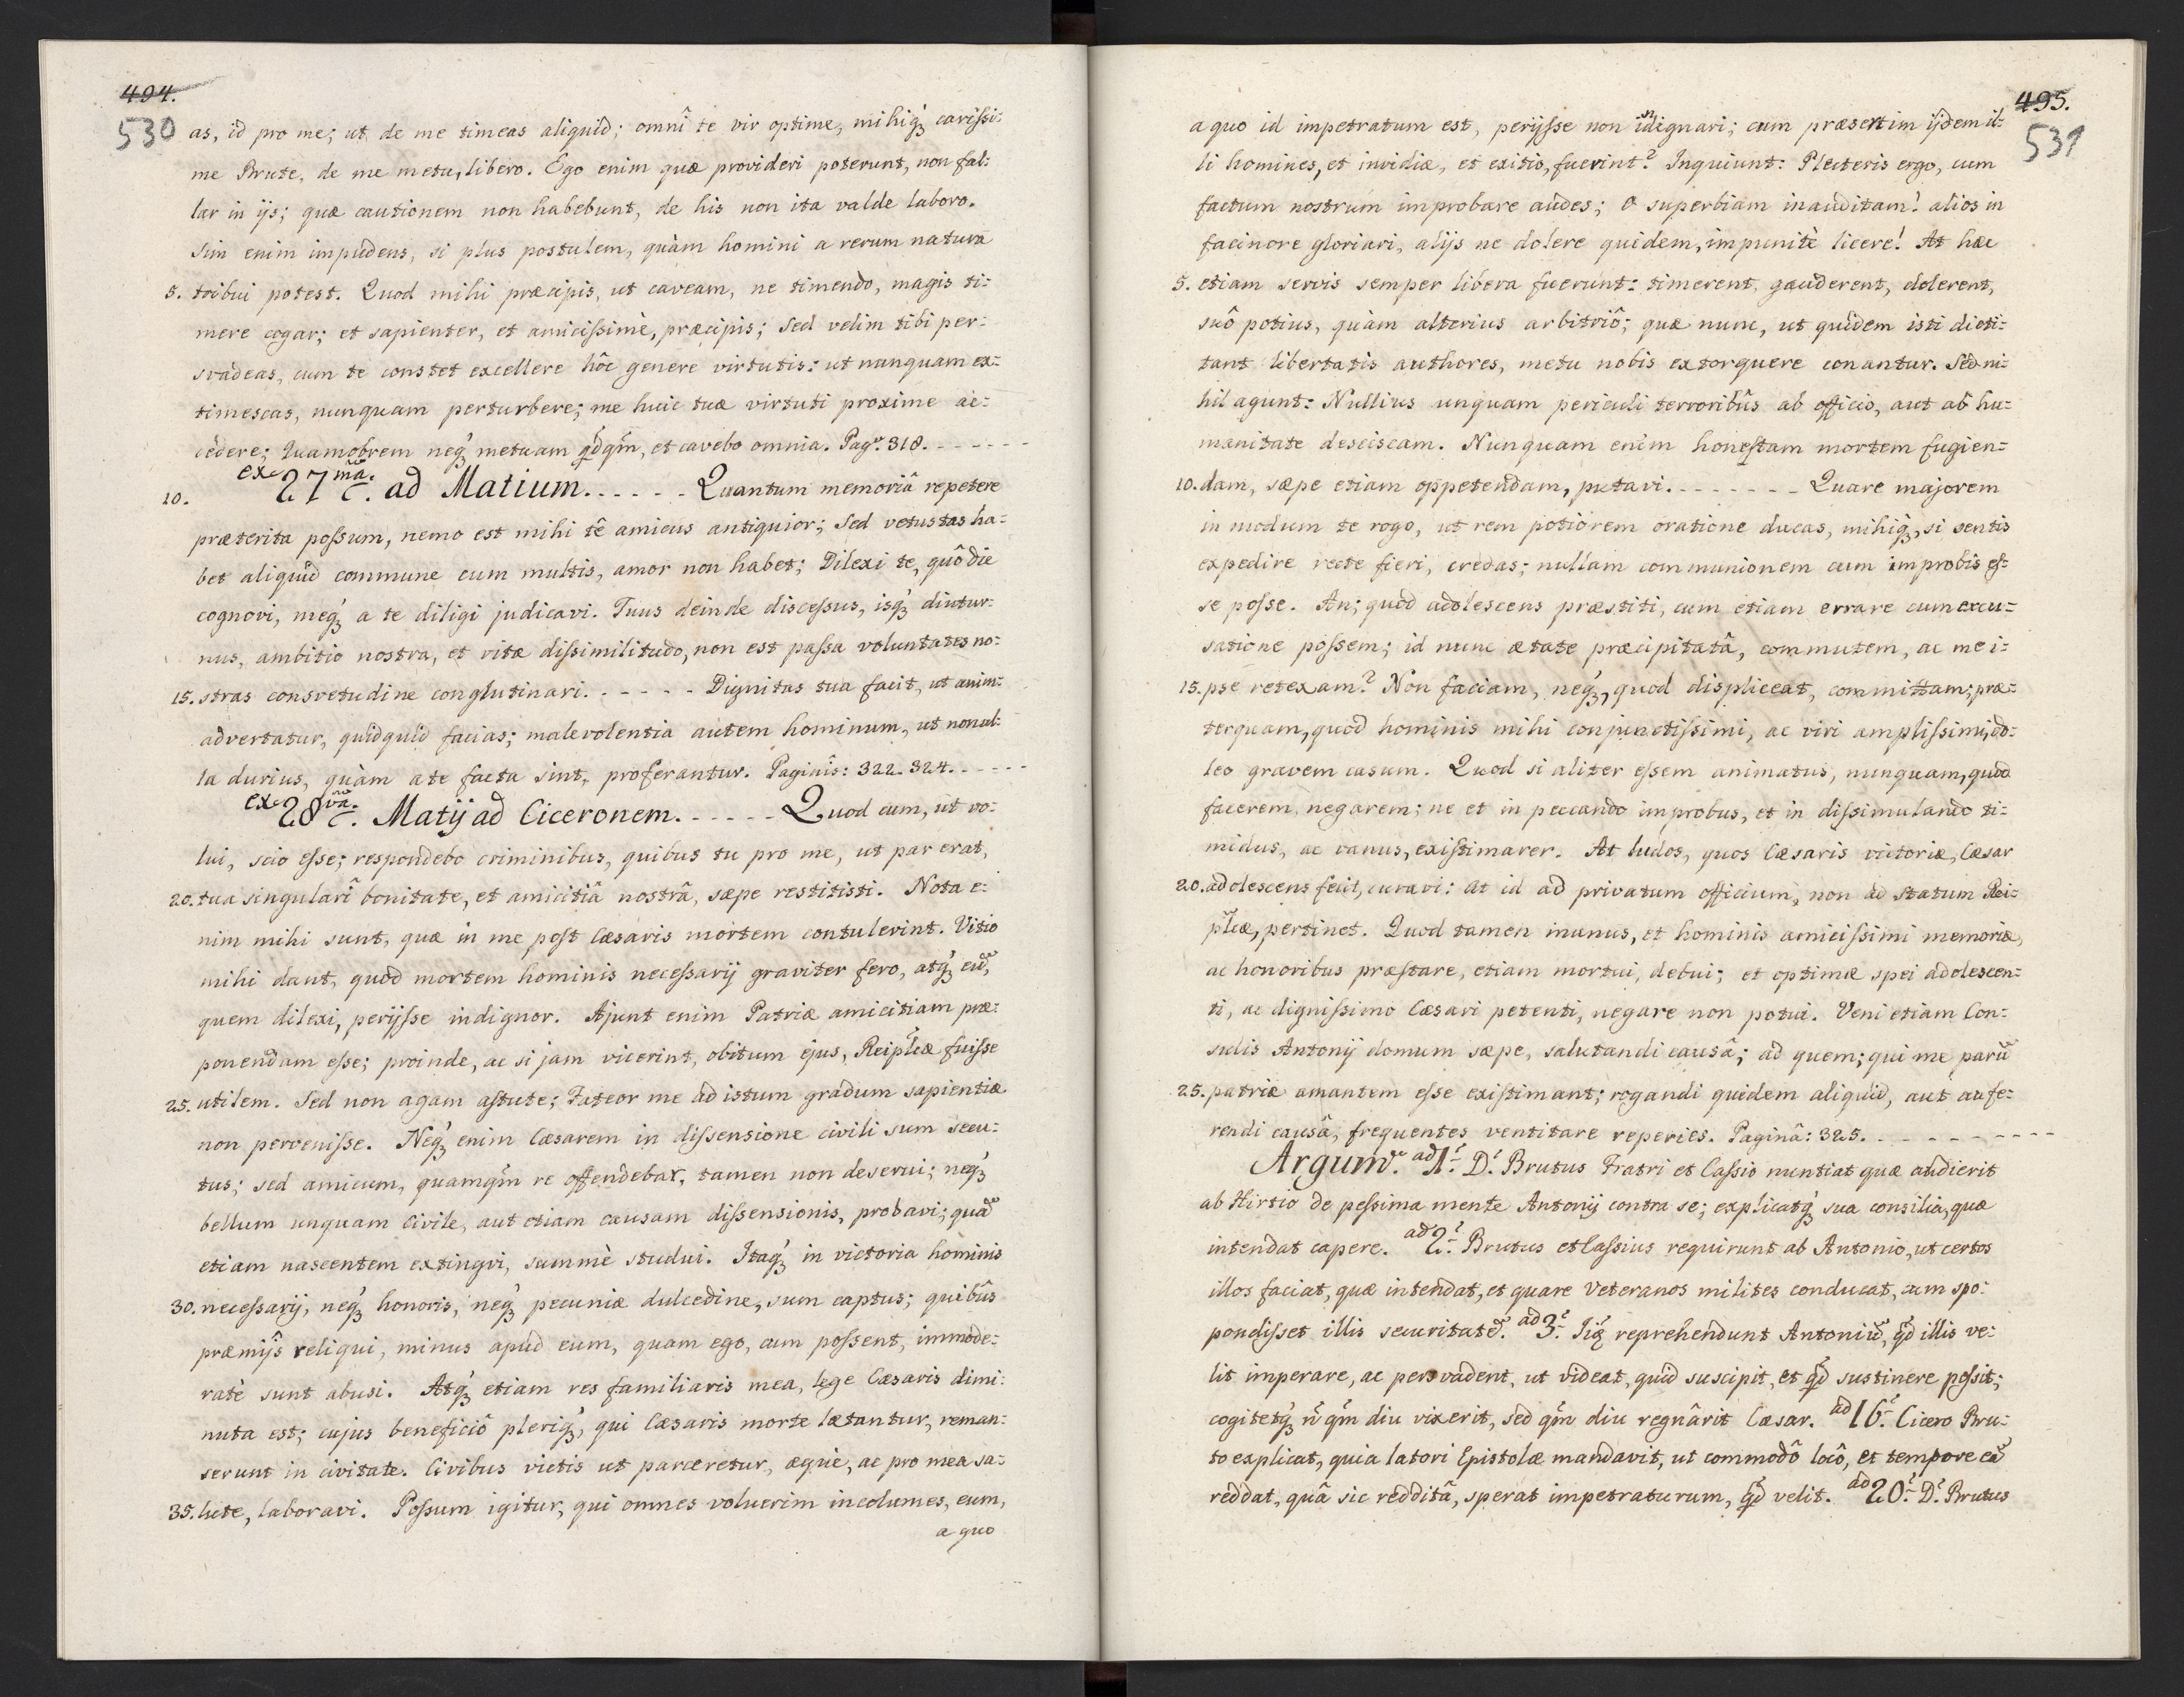 494.
530
as, id pro me; ut de me timeas aliquid; omnî te vir optime, mihiq́ꝫ carissi=
me Brute, de me metu, libero. Ego enim quæ provideri poterunt, non fal=
lar in ijs; quæ cautionem non habebunt, de his non ita valde laboro.
Sim enim impudens, si plus postulem, quàm homini a rerum natura
5. tribui potest. Quod mihi præcipis, ut caveam, ne timendo, magis ti=
mere cogar; et sapienter, et amicissimè, præcipis; Sed velim tibi per=
svadeas, cum te constet excellere hôc genere virtutis: ut nunquam ex=
timescas, nunquam perturbere; me huic tuæ virtuti proxime ac=
cedere; Quamobrem neq́ꝫ metuam q̃dq̃m, et cavebo omnia. Pag. 318. - - - - - -
10. ex 27mã. c. ad Matium. . . . . . Quantum memoriâ repetere
præterita possum, nemo est mihi tê amicus antiquior; Sed vetustas ha=
bet aliquid commune cum multis, amor non habet; Dilexi te, quô die
cognovi, meq́ꝫ a te diligi judicavi. Tuus deinde discessus, isq́ꝫ diutur=
nus, ambitio nostra, et vitæ dissimilitudo, non est passa voluntates no=
15. stras consvetudine conglutinari. - - - - - Dignitas tua facit, ut anim=
advertatur, quidquid facias; malevolentia autem hominum, ut nonul=
la durius, quàm a te facta sint, proferantur. Paginîs: 322. 324. - - - - -
ex 28vã. c. Matij ad Ciceronem. - - - - - Quod cum, ut vo=
lui, scio esse; respondebo criminibus, quibus tu pro me, ut par erat,
20. tua singularî bonitate, et amicitiâ nostrâ, sæpe restitisti. Nota e=
nim mihi sunt, quæ in me post Cæsaris mortem contulerint. Vitio
mihi dant, quòd mortem hominis necessarij graviter fero, atq́ꝫ eũ,
quem dilexi, perijsse indignor. Ajunt enim Patriæ amicitiam præ=
ponendam esse; proinde, ac si jam vicerint, obitum ejus, Reipl̃cæ fuisse
25. utilem. Sed non agam astute; Fateor me ad istum gradum sapientiæ
non pervenisse. Neq́ꝫ enim Cæsarem in dissensione civili sum secu=
tus; sed amicum, quamq̃m re offendebar, tamen non deserui; neq́ꝫ
bellum unquam Civile, aut etiam causam dissensionis, probavi; quã
etiam nascentem extingvi, summè studui. Itaq́ꝫ in victoria hominis
30. necessarij, neq́ꝫ honoris, neq́ꝫ pecuniæ dulcedine, sum captus; quibûs
præmijs reliqui, minus apud eum, quam ego, cum possent, immode=
ratè sunt abusi. Atq́ꝫ etiam res familiaris mea, lege Cæsaris dimi=
nuta est; cujus beneficiô pleriq́ꝫ, qui Cæsaris morte lætantur, reman=
serunt in civitate. Civibus victis ut parceretur, æquè, ac pro mea sa=
35. lute, laboravi. Possum igitur, qui omnes voluerim incolumes, eum,
a quo
495.
531
a quo id impetratum est, perijsse non indignari; cum præsertim ijdem il=
li homines, et invidiæ, et exitio, fuerint? Inquiunt: Plecteris ergo, cum
factum nostrum improbare audes; O superbiam inauditam! alios in
facinore gloriari, alijs ne dolere quidem, impunitè licere! At hæc
5. etiam servis semper libera fuerunt: timerent, gauderent, dolerent,
suô potius, quàm alterius arbitriô; quæ nunc, ut quidem isti dicti=
tant libertatis authores, metu nobis extorquere conantur. Sed ni=
hil agunt: Nullius unquam periculi terroribûs ab officio, aut ab hu=
manitate desciscam. Nunquam enim honestam mortem fugien=
10. dam, sæpe etiam oppetendam, putavi. - - - - - - - Quare majorem
in modum te rogo, ut rem potiorem oratione ducas, mihiq́ꝫ, si sentis
expedire recte fieri, credas; nullam communionem cum improbis es=
se posse. An; quòd adolescens præstiti, cum etiam errare cum excu=
satione possem; id nunc ætate præcipitatâ, commutem, ac me i=
15. pse retexam? Non faciam, neq́ꝫ, quod displiceat, committam; præ=
terquam, quod hominis mihi conjunctissimi, ac viri amplissimi, do=
leo gravem casum. Quod si aliter essem animatus, nunquam, quod
facerem, negarem; ne et in peccando improbus, et in dissimulando ti=
midus, ac vanus, existimarer. At ludos, quos Cæsaris victoriæ, Cæsar
20. adolescens fecit, curavi: At id ad privatum officium, non ad statum Rei=
pl̃cæ, pertinet. Quod tamen munus, et hominis amicissimi memoriæ,
ac honoribus præstare, etiam mortui, debui; et optimæ spei adolescen=
ti, ac dignissimo Cæsari petenti, negare non potui. Veni etiam Con=
sulis Antonij domum sæpe, salutandi causâ; ad quem; qui me parũ
25. patriæ amantem esse existimant; rogandi quidem aliquid, aut aufe=
rendi causâ, frequentes ventitare reperies. Paginâ: 325. - - - - - - - - - -
Argum. ad 1. D. Brutus Fratri et Cassio nuntiat quæ audierit
ab Hirtio de pessima mente Antonij contra se; explicatq́ꝫ sua consilia, quæ
intendat capere. ad 2. Brutus et Cassius requirunt ab Antonio, ut certos
illos faciat, quæ intendat, et quare Veteranos milites conducat, cum spo=
pondisset illis securitatẽ. ad 3. Iiq̃ reprehendunt Antoniũ, q̃d illis ve=
lit imperare, ac persvadent, ut videat, quid suscipit, et q̃d sustinere possit;
cogitetq́ꝫ ñ q̃m diu vixerit, sed q̃m diu regnârit Cæsar. ad 16. Cicero Bru=
to explicat, quia latori Epistolæ mandavit, ut commodô locô, et tempore eã
reddat, quâ sic redditâ, sperat impetraturum, q̃d velit. ad 20. D. Brutus